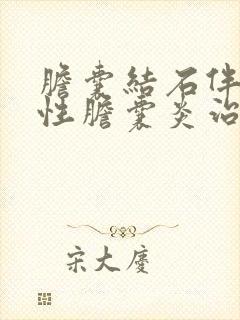 膽囊結石伴
性膽囊炎治
宋大慶